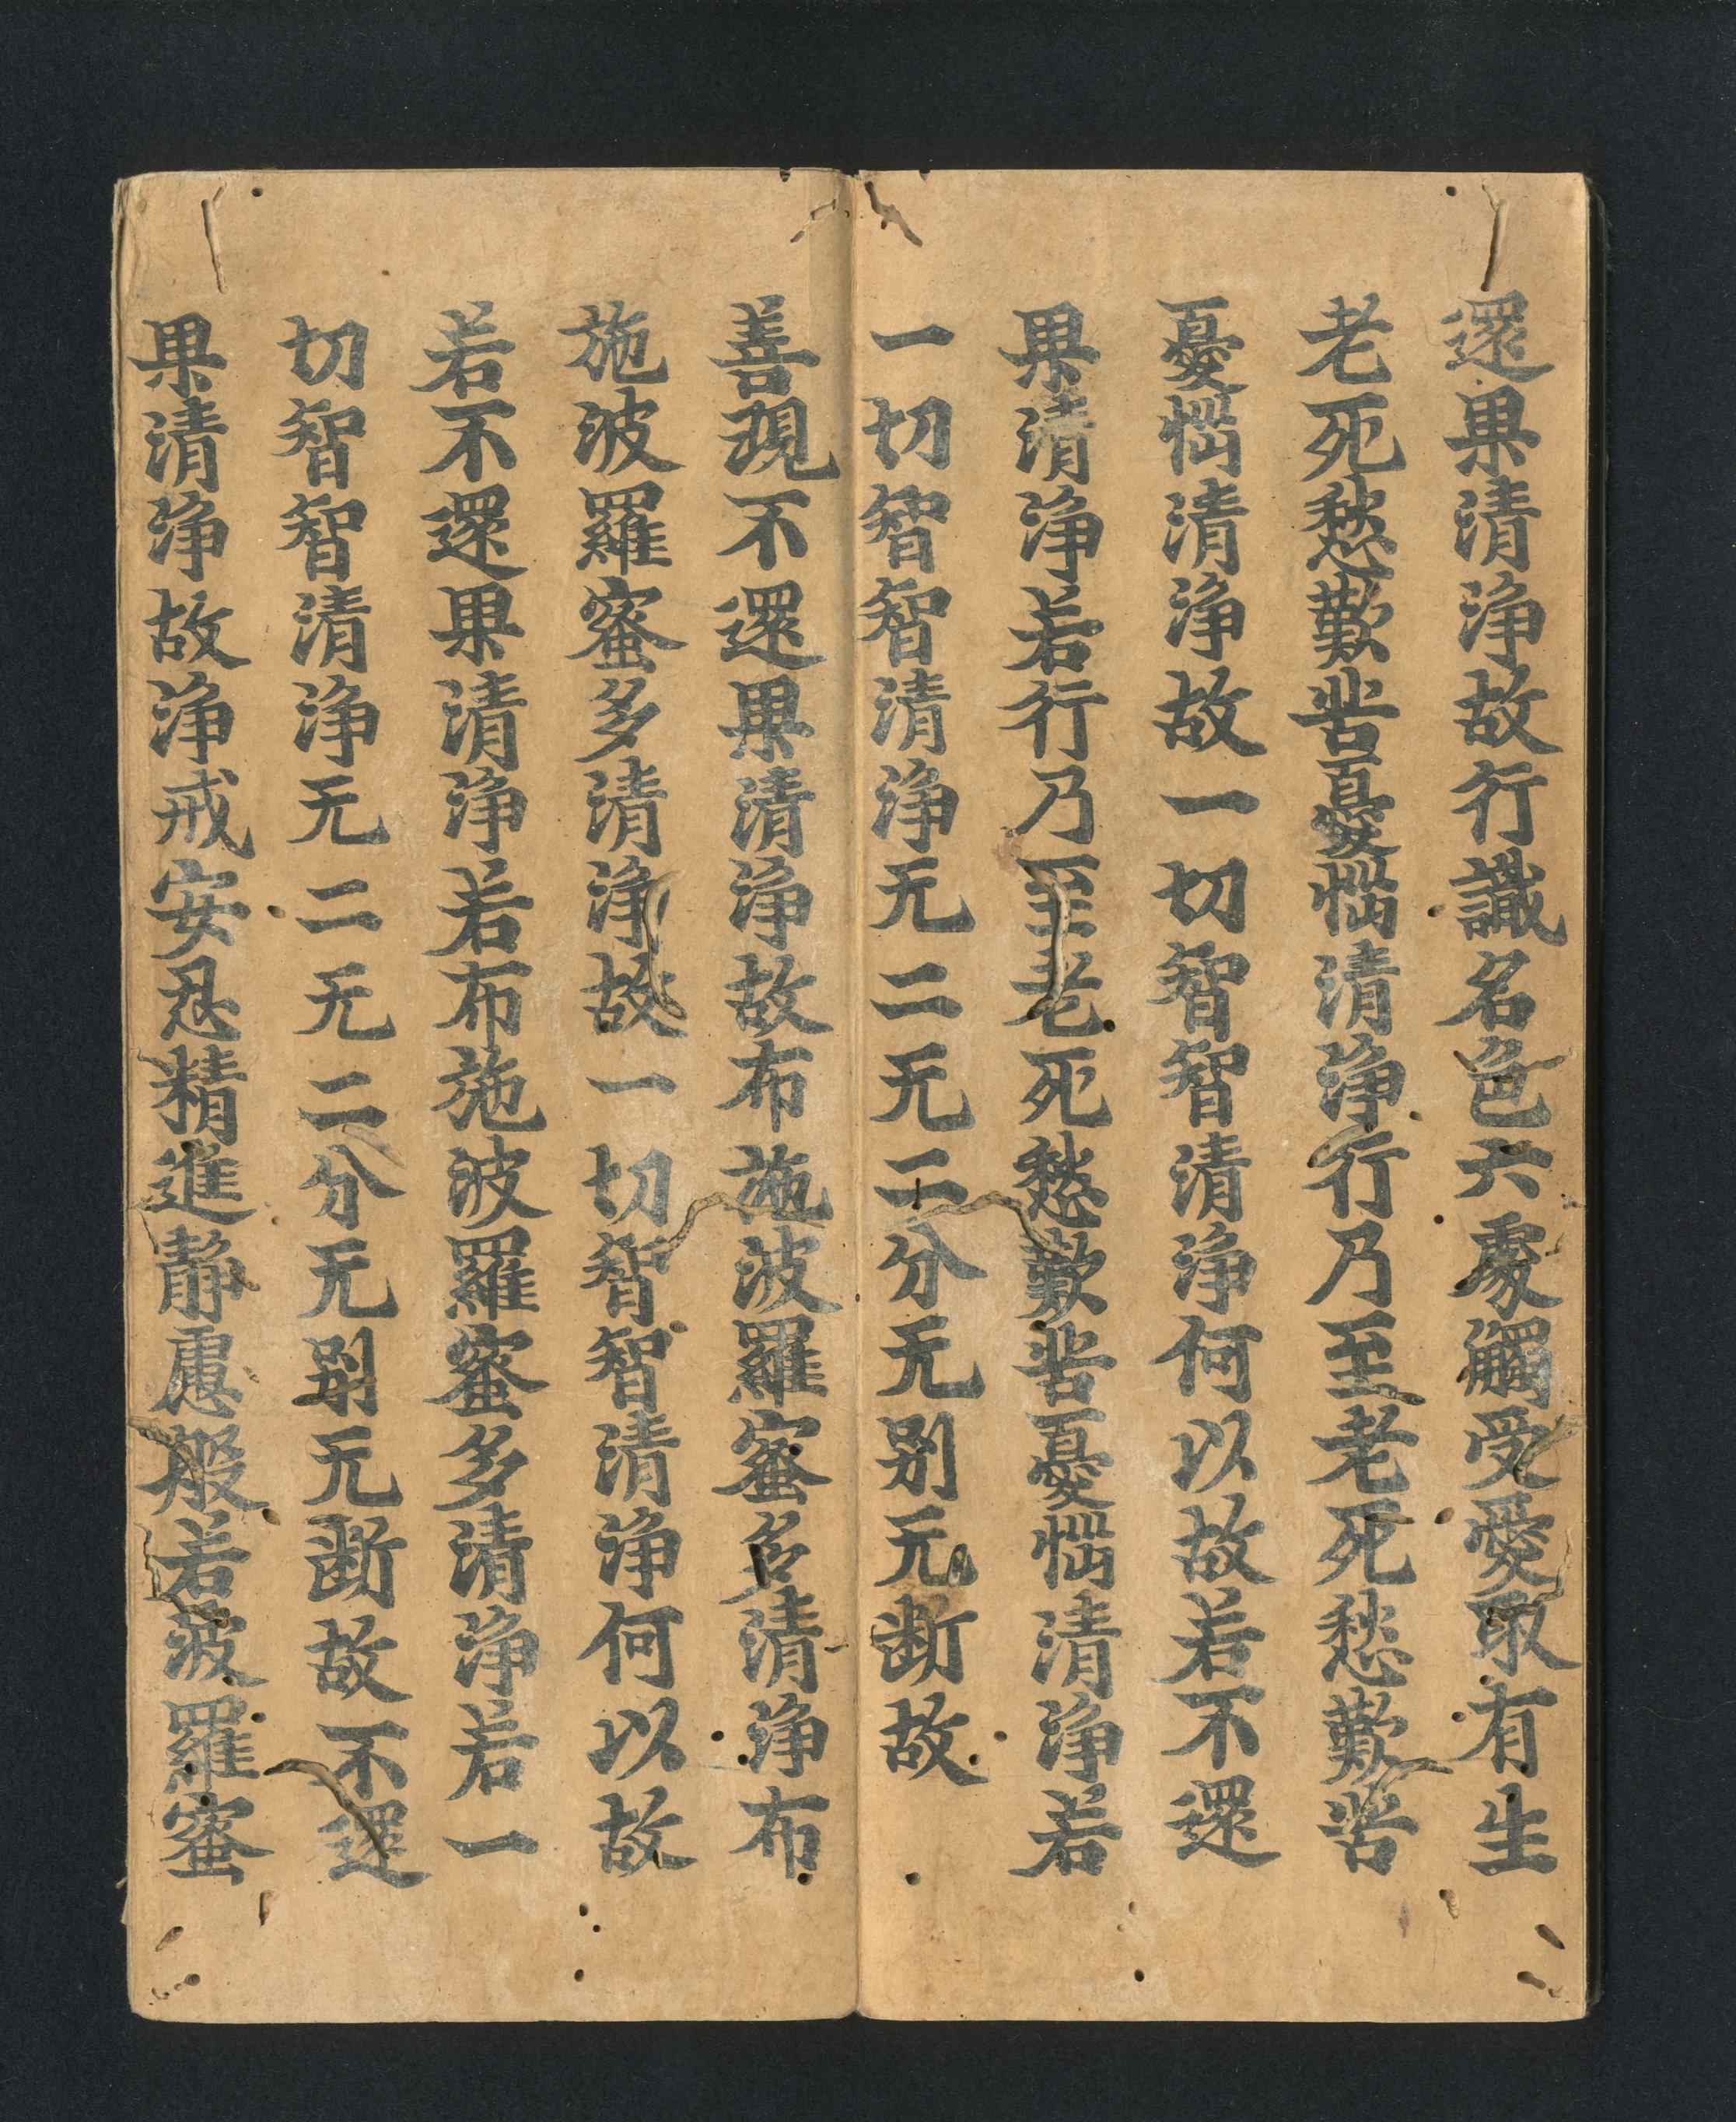 還果清淨故行識名色六處觸受愛取有生
老死愁歎苦憂惱清淨行乃至老死愁歎苦
憂惱清淨故一切智智清淨何以故若不還
果清淨若行乃至老死愁歎苦憂惱清淨若
一切智智清淨无二无二分无別无斷故
善現不還果清淨故布施波羅蜜多清淨布
施波羅蜜多清淨故一切智智清淨何以故
若不還果清淨若布施波羅蜜多清淨若一
切智智清淨无二无二分无別无斷故不還
果清淨故淨戒安忍精進靜慮般若波羅蜜